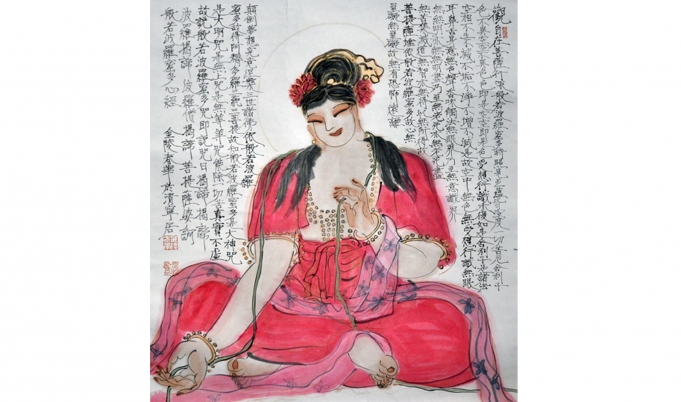 觀自在菩薩行深般若波羅蜜多時照見五蘊皆空度一切苦厄舍利子
色不異空空不異色色即是空空即是色受想行識亦復如是舍利子是諸法
空相不生不滅不垢不淨不增不減是故空中無色無受想行識無眼
耳鼻舌身意無色聲香味觸法無眼界乃至無意識界
無無明亦無無明盡乃至無老死亦無老死盡無苦集
滅道無智亦無得以無所得故
菩提薩埵依般若波羅蜜多故心無
罣礙無罣礙故無有恐怖遠離
顛倒夢想究竟涅槃三世諸佛依般若波羅
蜜多故得阿耨多羅三藐三菩提故知般若波羅蜜多是大神咒
是大明咒是無上咒是無等等咒能除一切苦真實不虛
故說般若波羅蜜多咒即說咒曰揭諦揭諦
波羅揭諦波羅僧揭諦菩提薩婆訶
般若波羅蜜多心經 金陵